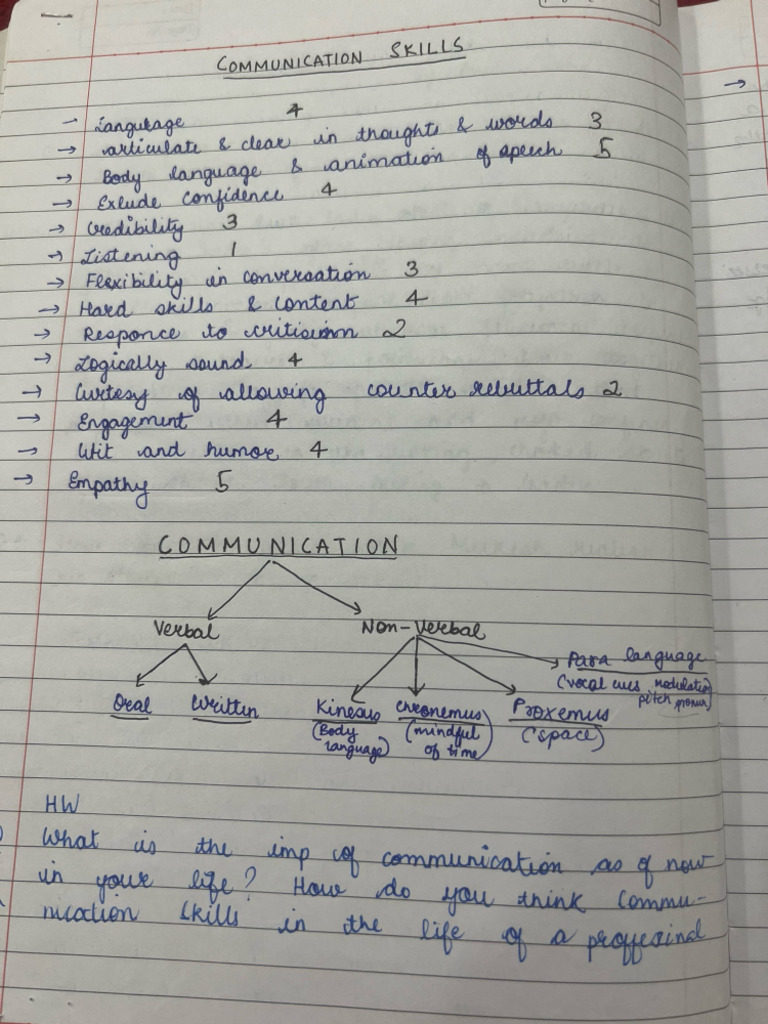 COMMUNICATION SKILLS
→ Language 4
→ articulate & clear in thoughts & words 3
→ Body language & animation of speech 5
→ Exlude confidence 4
→ Credibility 3
→ Listening 1
→ Flexibility in conversation 3
→ Hard skills & content 4
→ Responce to criticism 2
→ Logically sound 4
→ Curtesy of allowing counter rebuttals 2
→ Engagement 4
→ Wit and humor 4
→ Empathy 5
COMMUNICATION
Verbal Non-Verbal
Para language
(vocal cues modulation
pitch)
Oral Written Kinesis Chronemus Proxemus
(Body language) (mindful of time) (space)
HW
What is the imp of communication as of now
in your life? How do you think commu-
nication skills in the life of a proffesinal